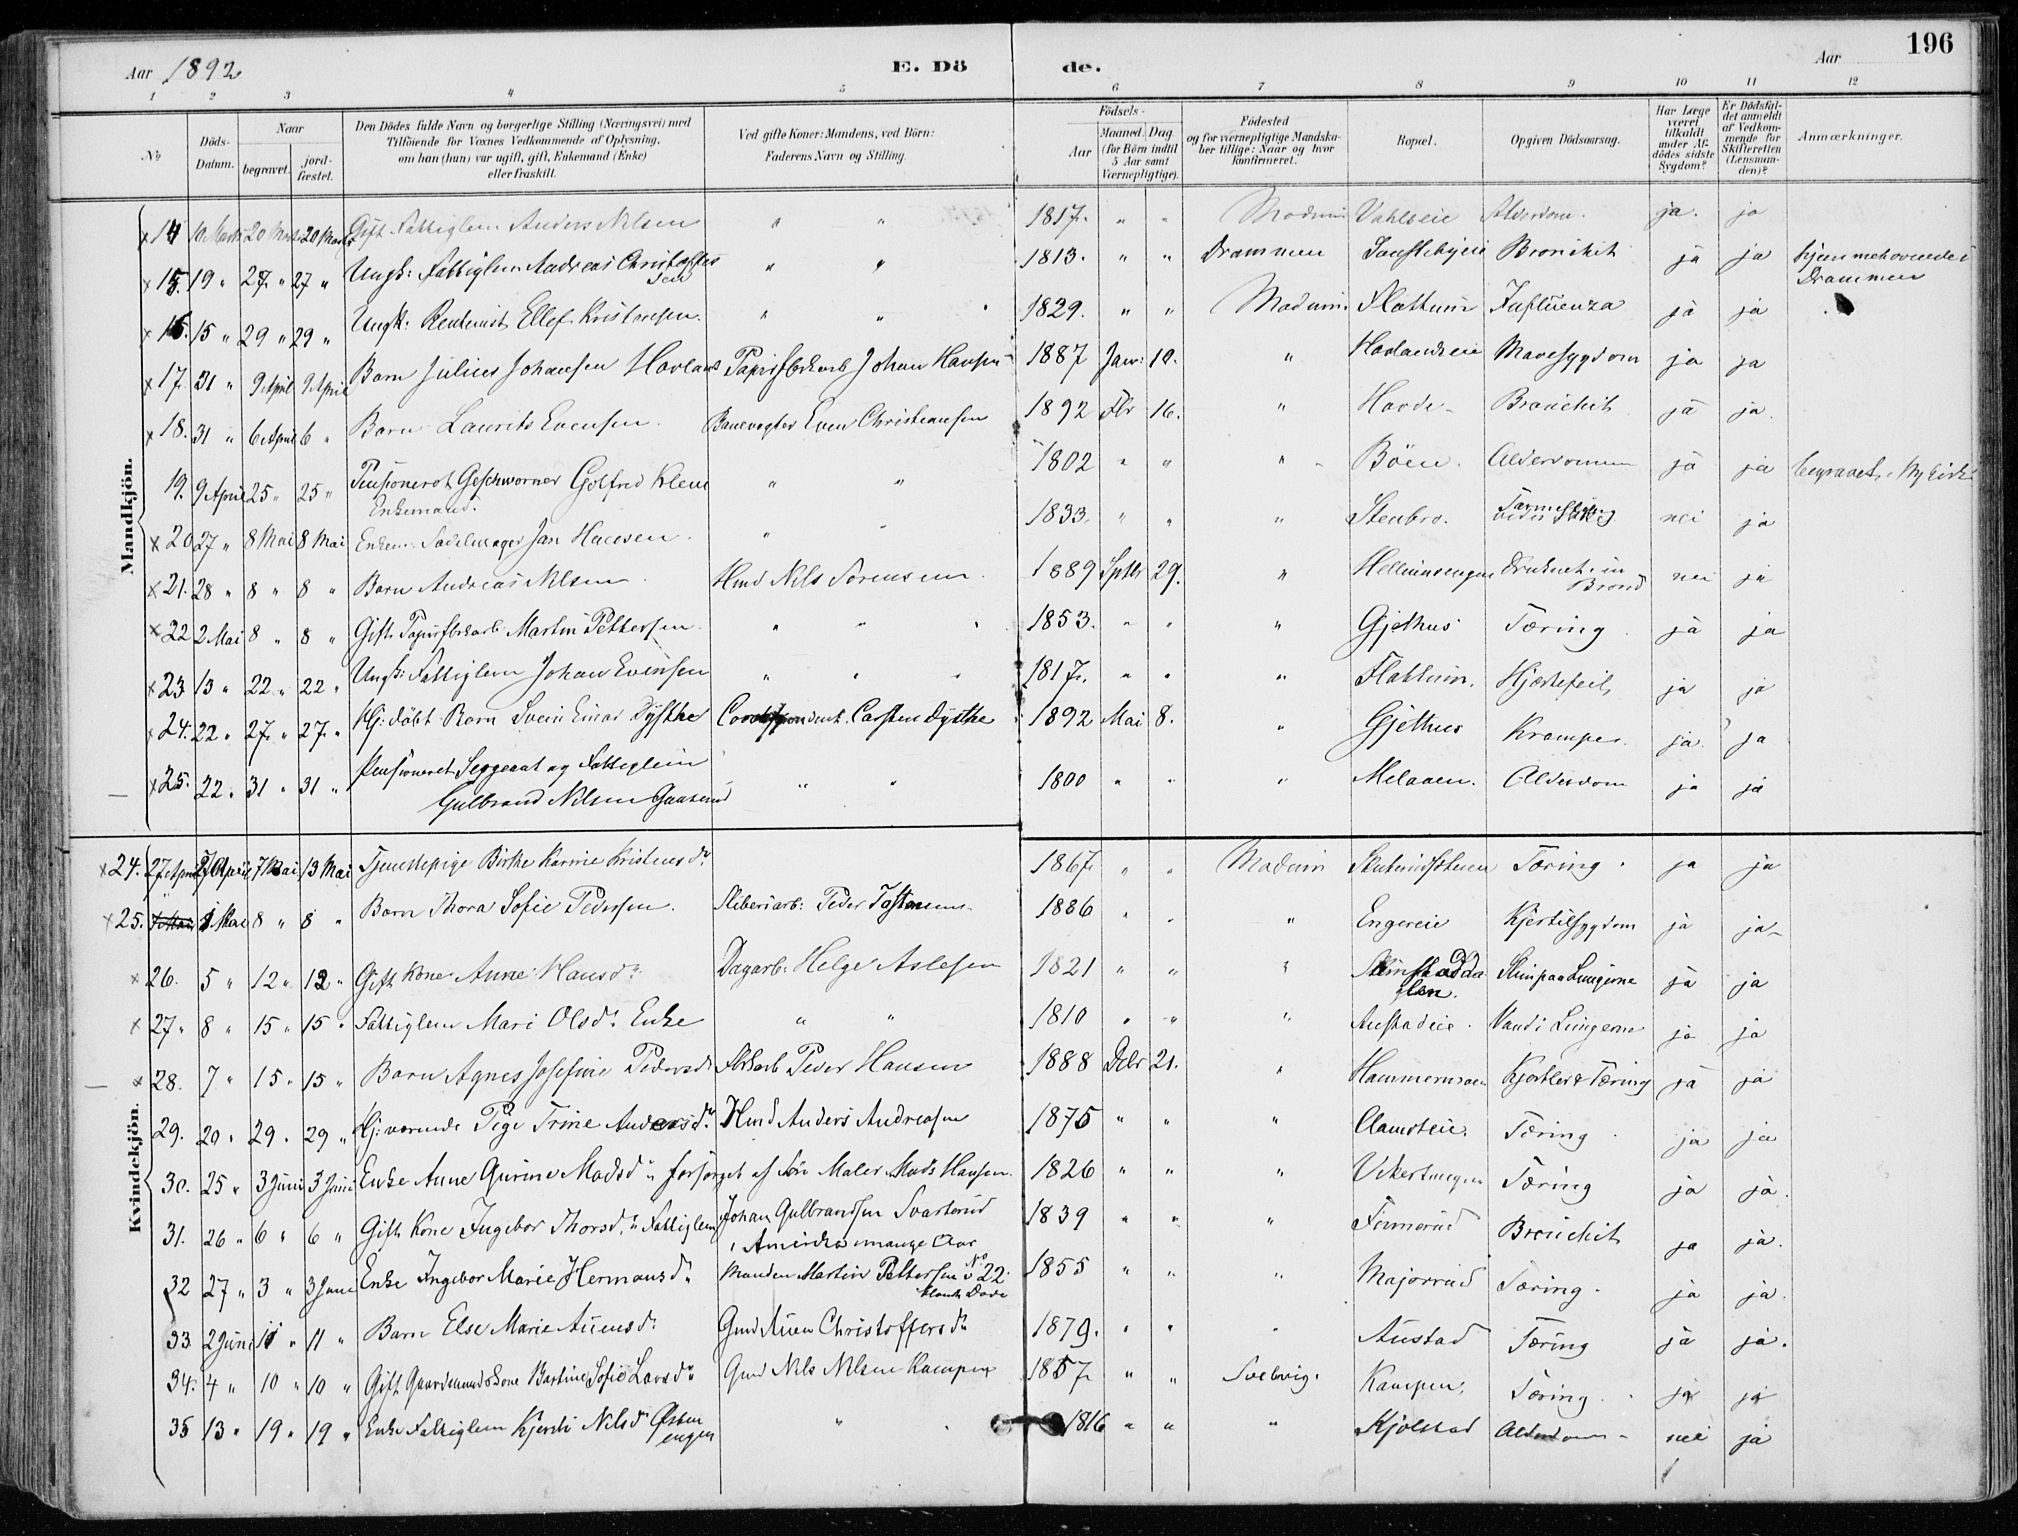 Aar 1892
E. Döde.
Aar
196
1 2 3 4 5 6 7 8 9 10 11 12
No.
Döds-Datum.
Naar
begravet.
jordfæstet.
Den Dödes fulde Navn og borgerlige Stilling (Næringsvei) med
Tilföiende for Voxnes Vedkommende af Oplysning,
om han (hun) var ugift, gift, Enkemand (Enke)
eller fraskilt.
Ved gifte Koner: Mandens, ved Börn:
Faderens Navn og Stilling.
Födsels-
Aar
Maaned. Dag
(for Börn indtil
5 Aar samt
Værnepligtige).
Födested
og for værnepligtige Mandskaber tillige: Naar og hvor
konfirmeret.
Bopæl.
Opgiven Dödsaarsag.
Har Læge været tilkaldt under Afdödes sidste Sygdom?
Er Dödsfaldet anmeldt af Vedkommende for Skifteretten (Lensmanden)?
Anmærkninger.
Mandkjön.
x 14 10 Marts 20 Marts 20 Marts Gift Fattiglem Anders Nilsen " " 1817. " " Modum Vahlseie Alderdom. ja. ja
x 15. 19 " 27 " 27 " Ungk: Fattiglem Andreas Christoffersen " " 1813. " " Drammen Bronchit ja ja hjemmehörende i Drammen
x 16. 15 " 29 " 29 " Ungk: Rentenist Ellef Kristensen. " " 1829. " " Modum Flattum Influenza ja ja
x 17. 31 " 9 April 9 April Barn Julius Johansen Hovland Papirfbrkarb Johan Hansen 1887 Jan: 10. " Hovlandseie Mavesygdom ja ja
x 18. 31 " 6 April 6 " Barn Laurits Evensen. Banevogter Even Christiansen 1892 Fbr 16. " Hovde Bronchit ja ja.
19. 9 April 25 " 25 " Pensioneret Geschworner Gotfred Klem Enkemand. " " 1802 " " " Böen. Alderdommen ja ja begravet i Nykirke
x 20 27 " 8 Mai 8 Mai Enkem. Sadelmager Jan Hansen. " 1833. " " " Stenbro. nei ja
x 21. 28 " 8 " 8 " Barn Andreas Nilsen. Hmd Nils Sorensen. 1889 Sptbr 29. " Druknet i en Brönd nei ja
x 22 2 Mai 8 " 8 " Gift Papirfbrkarb: Martin Pettersen. " " 1853. " " " Gjethus Tæring. ja ja
x 23 13 " 22 " 22 " Ungk: Fattiglem Johan Evensen " " 1817. " " " Flattum. Hjertefeil, ja ja
x 24. 22 " 27 " 27 " Hj: döbt Barn Svein Einar Dysthe Correspondent. Carsten Dysthe 1892 Mai 8. " Gjethus Kramper. ja. ja
x 25. 22 " 31 " 31 " Pensioneret Sergeant og Fattiglem
Gulbrand Nilsen Gaaserud " " 1800 " " " Melaaen. Alderdom ja ja
Kvindekjön.
x 24. 27 April 7 Mai 13 Mai Tjenestepige Birthe Karine Kristensdr 1867 " " Modum Tæring. ja ja
x 25. 1 Mai 8 " 8 " Barn Thora Sofie Pedersen. Sliberiarb: Peder Tostensen. 1886 " " " Engereie Kjertelsygdom ja ja
x 26. 5 " 12 " 12 " Gift Kone Anne Hansdr. Dagarb: Helge Aslesen 1821 " " " Sliim paa Lungerne ja ja
x 27 " 8 " 15 " 15 " Fattiglem Mari Olsdr. Enke " " 1810 " " " Austadeie. Vand i Lungerne ja ja
x 28. 7 " 15 " 15 " Barn Agnes Josefine Pedersdr Fbrkarb Peder Hansen 1888 Dcbr 21. " Hammermoen Kjertler & Tæring ja ja
29. 20 " 29 " 29 " Hj: værende Pige Trine Andersdr. Hmd Anders Andreasen 1875 " " " Tæring. ja ja
30. 25 " 3 Juni 3 Juni Enke Anne Gurine Madsdr. forsörget af Sön Maler Mads Hansen. 1826 " " " Vikersengen Tæring ja ja.
31. 26 " 6 " 6 " Gift Kone Ingebor Thorsdr. Fattiglem Johan Gulbrandsen Svarterud
i Amerika mange Aar 1839 " " " Finnerud Bronchit ja ja.
32 27 " 3 " 3 Juni Enke Ingebor Marie Hermansdr. Manden Martin Pettersen No 22
blandt Döde 1855 " " " Majorrud Tæring. ja ja.
33. 2 Juni 11 " 11 " Barn Else Marie Auensdr. Gmd Auen Christoffersdr 1879. " " " Austad Tæring ja ja.
34. 4 " 10 " 10 " Gift Gaardmandskone Bertine Sofie Larsdr Gmd Nils Nilsen Kampen 1857 " " Svelvig. Kampen, Tæring. ja ja
35 13 " 19 " 19 " Enke Fattiglem Kjersti Nilsdr Östenengen " 1816 " " " Kjölstad Alderdom nei ja